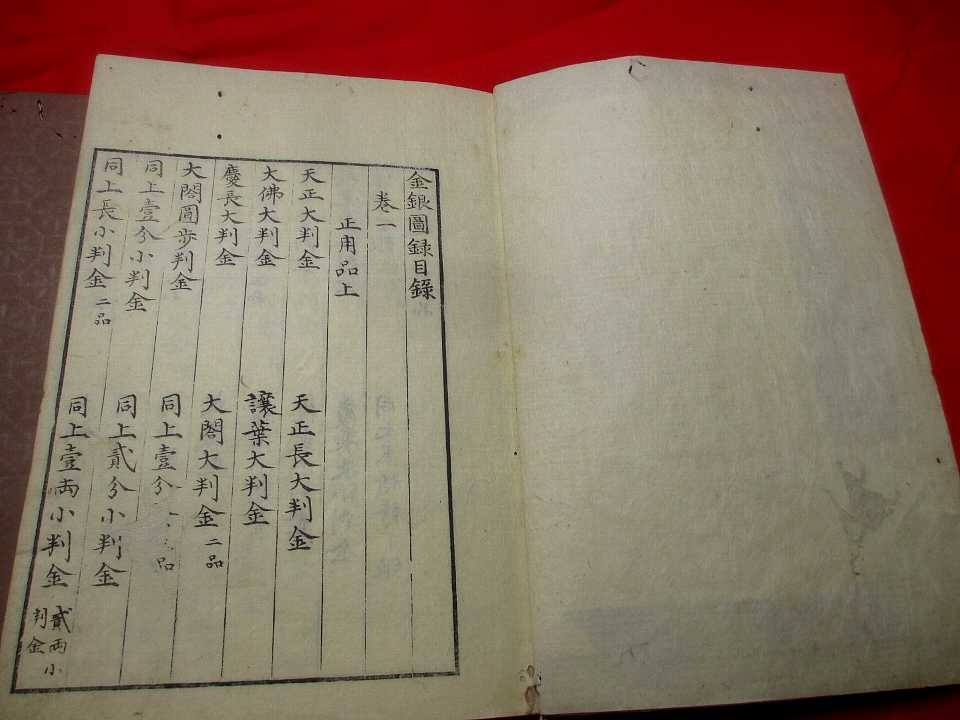 金銀圖録目錄
卷一
正用品上
天正大判金 天正長大判金
大佛大判金 讓葉大判金
慶長大判金 大閤大判金二品
大閤圓歩判金 同上壹分 品
同上壹分小判金 同上貳分小判金
同上長小判金二品 同上壹両小判金
貳両小判金